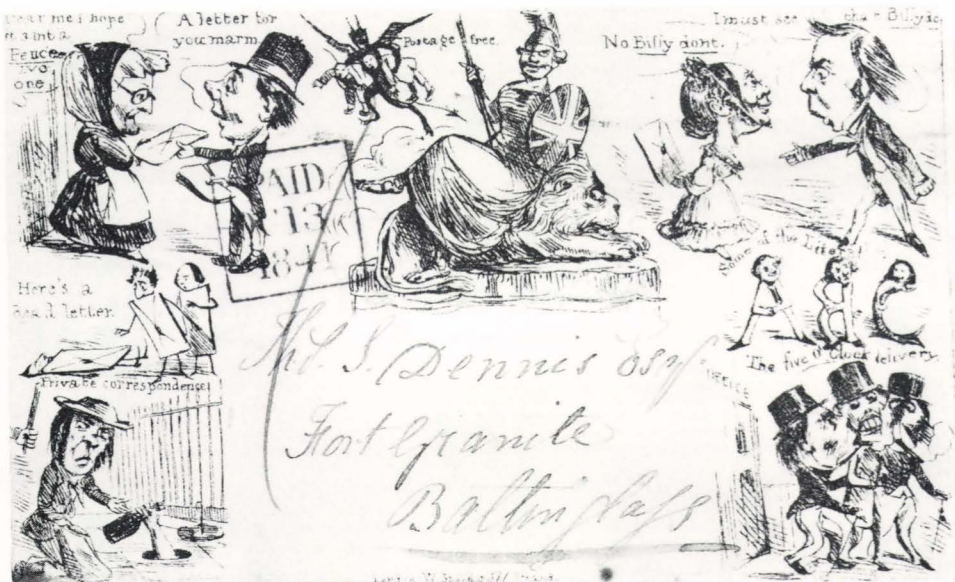 Dear me I hope
it aint a
Peuce
one
A letter for
you marm.
Postage free.
No Billy dont.
I must see
Billy do
Here's a
Dead letter.
Private correspondence
Some of the
A B C
The five O'Clock delivery.
PAID
13
18
Dennis Esqr
Fort Granite
Baltinglass